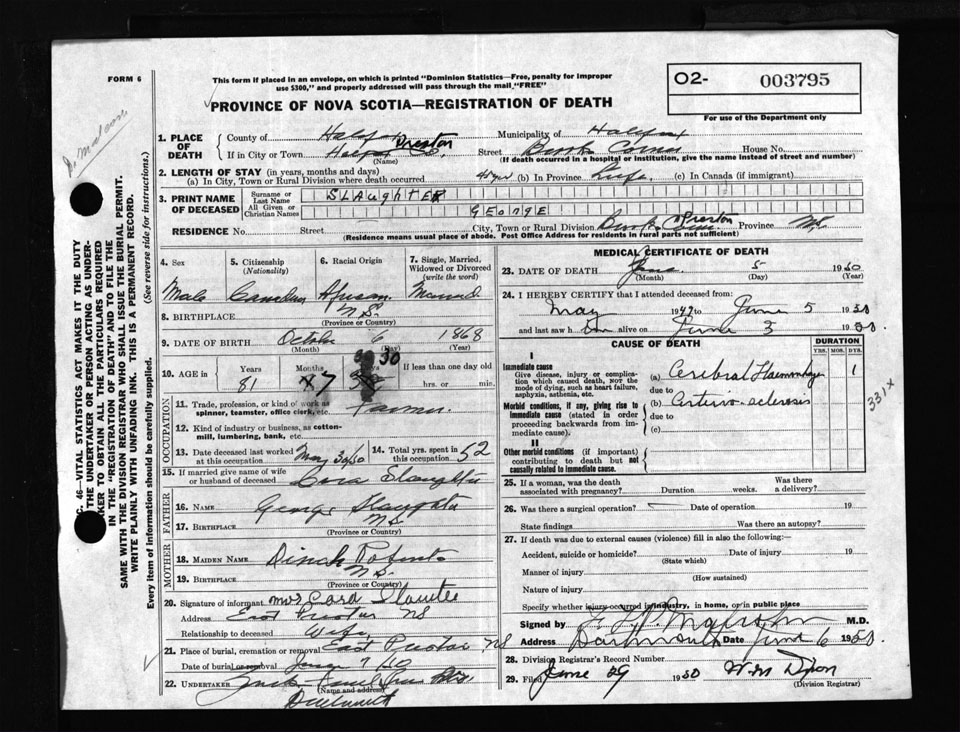 FORM 6
This form if placed in an envelope, on which is printed "Dominion Statistics—Free, penalty for improper
use $300," and properly addressed will pass through the mail "FREE"
O2- 003795
For use of the Department only
PROVINCE OF NOVA SCOTIA—REGISTRATION OF DEATH
1. PLACE OF DEATH
County of Halifax Municipality of Halifax
If in City or Town Preston Street House No.
(Name) (If death occurred in a hospital or institution, give the name instead of street and number)
2. LENGTH OF STAY (in years, months and days)
(a) In City, Town or Rural Division where death occurred (b) In Province Life (c) In Canada (if immigrant)
3. PRINT NAME OF DECEASED
Surname or Last Name SLAughTER
All Given or Christian Names GEorgE
RESIDENCE No. Street City, Town or Rural Division Preston Province NS
(Residence means usual place of abode. Post Office Address for residents in rural parts not sufficient)
4. SEX 5. CITIZENSHIP (Nationality) 6. RACIAL ORIGIN 7. Single, Married, Widowed or Divorced (write the word)
Male Canadian African Married
8. BIRTHPLACE N.S.
(Province or Country)
9. DATE OF BIRTH October 6 1868
(Month) (Day) (Year)
10. AGE in Years Months Days If less than one day old
81 7 30 hrs. or min.
OCCUPATION
11. Trade, profession, or kind of work as
spinner, teamster, office clerk, etc. Farmer
12. Kind of industry or business, as cotton-
mill, lumbering, bank, etc.
13. Date deceased last worked at this occupation May 30/50 14. Total yrs. spent in this occupation 52
15. If married give name of wife
or husband of deceased Cora Slaughter
FATHER
16. NAME George Slaughter
17. BIRTHPLACE N.S.
(Province or Country)
MOTHER
18. MAIDEN NAME Dinah
19. BIRTHPLACE N.S.
(Province or Country)
20. Signature of informant Mrs Cora
Address East Preston NS
Relationship to deceased Wife
21. Place of burial, cremation or removal East Preston NS
Date of burial or removal June 7/50
22. UNDERTAKER
(Name and address)
MEDICAL CERTIFICATE OF DEATH
23. DATE OF DEATH June 5 1950
(Month) (Day)
24. I HEREBY CERTIFY that I attended deceased from
May 1949 to June 5 1950
and last saw him alive on June 3 1950.
CAUSE OF DEATH DURATION
YRS. MOS. DYS.
I
Immediate cause
Give disease, injury or complication which caused death, NOT the mode of dying, such as heart failure, asphyxia, asthenia, etc.
(a) Cerebral Haemorrhage 1
due to
Morbid conditions, if any, giving rise to immediate cause (stated in order proceeding backwards from immediate cause).
(b) Arterio-sclerosis
due to
(c)
331X
II
Other morbid conditions (if important) contributing to death but not causally related to immediate cause.
25. If a woman, was the death associated with pregnancy? Duration weeks. Was there a delivery?
26. Was there a surgical operation? Date of operation 19
State findings Was there an autopsy?
27. If death was due to external causes (violence) fill in also the following:—
Accident, suicide or homicide? Date of injury 19
(State which)
Manner of injury
(How sustained)
Nature of injury
Specify whether injury occurred in industry, in home, or in public place
Signed by M.D.
Address Dartmouth Date June 6 1950
28. Division Registrar's Record Number
29. Filed June 29 1950 Wm Dixon
(Division Registrar)
C. 46—VITAL STATISTICS ACT MAKES IT THE DUTY
THE UNDERTAKER OR PERSON ACTING AS UNDER-
KER TO OBTAIN ALL THE PARTICULARS REQUIRED
IN THE "REGISTRATION OF DEATH" AND TO FILE THE
SAME WITH THE DIVISION REGISTRAR WHO SHALL ISSUE THE BURIAL PERMIT.
WRITE PLAINLY WITH UNFADING INK. THIS IS A PERMANENT RECORD.
Every item of information should be carefully supplied. (See reverse side for instructions.)